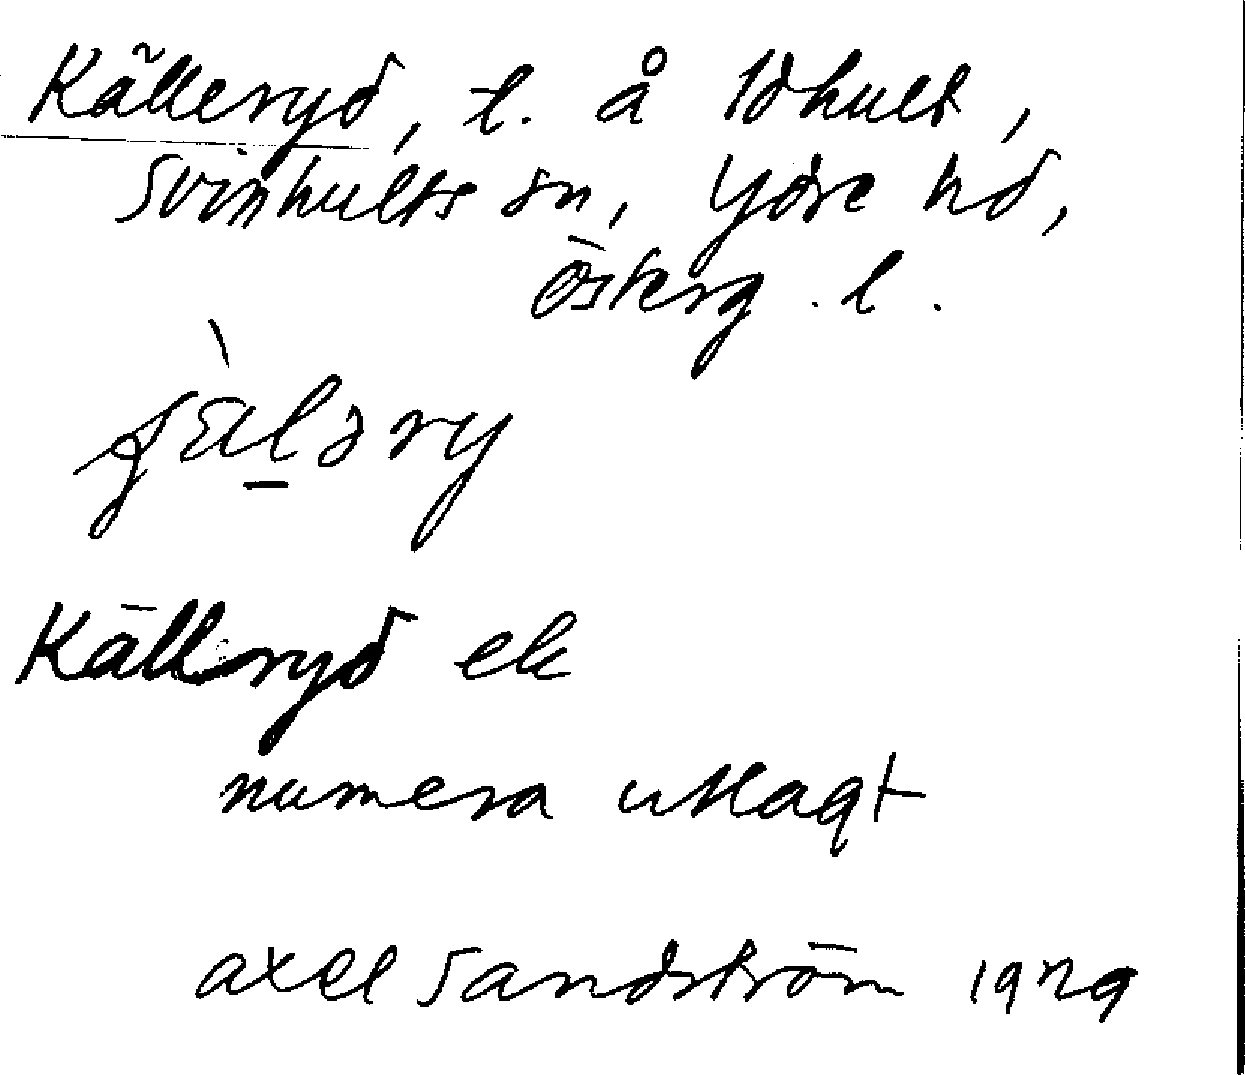 Källeryd, t. å Idhult,
Svinhults sn, Ydre hd,
Österg. l.
Källryd ek
numera utlagt
Axel Sandström 1929